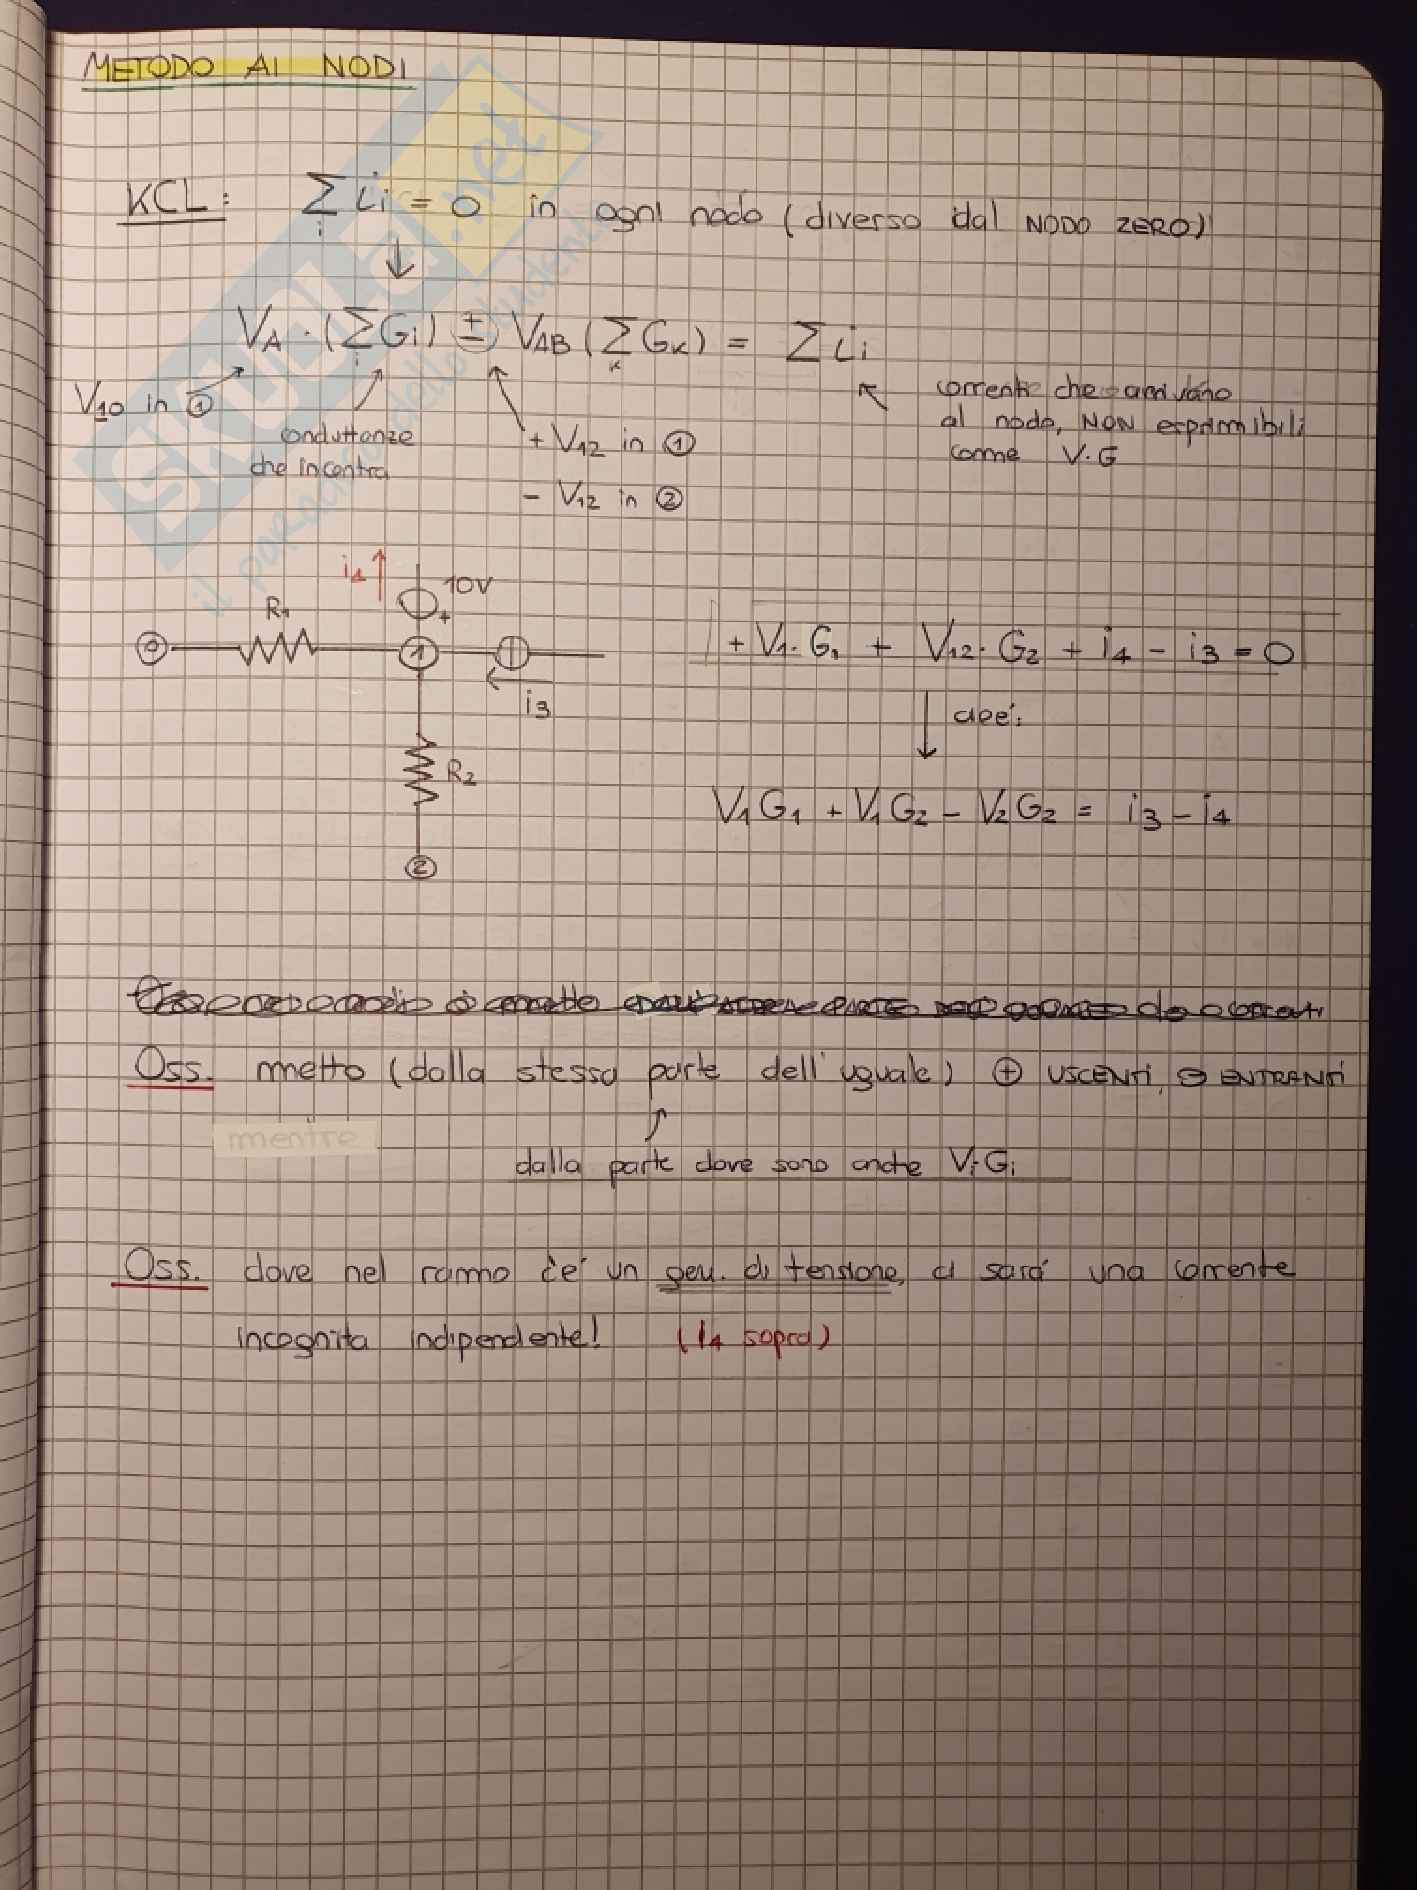 METODO AI NODI
KCL: ∑i ii = 0 in ogni nodo (diverso dal NODO ZERO)
↓
VA · (∑i Gi) ± VAB (∑k Gk) = ∑ ii
V10 in ①
conduttanze
che incontra
+ V12 in ①
- V12 in ②
correnti che arrivano
al nodo, NON esprimibili
come V·G
i4 ↑
10V
+
R1
⓪
①
i3
R2
②
+ V1·G1 + V12·G2 + i4 - i3 = 0
↓ cioè:
V1G1 + V1G2 - V2G2 = i3 - i4
Oss. metto (dalla stessa parte dell'uguale) ⊕ USCENTI, ⊖ ENTRANTI
mentre
dalla parte dove sono anche Vi·Gi
Oss. dove nel ramo c'è un gen. di tensione, ci sarà una corrente
incognita indipendente! (i4 sopra)
SKUOLA.net
il paradiso dello studente